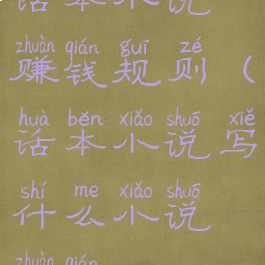 话本小说
zhuàn qián guī zé
赚钱规则（
huà běn xiǎo shuō xiě
话本小说写
shí me xiǎo shuō
什么小说
zhuàn qián